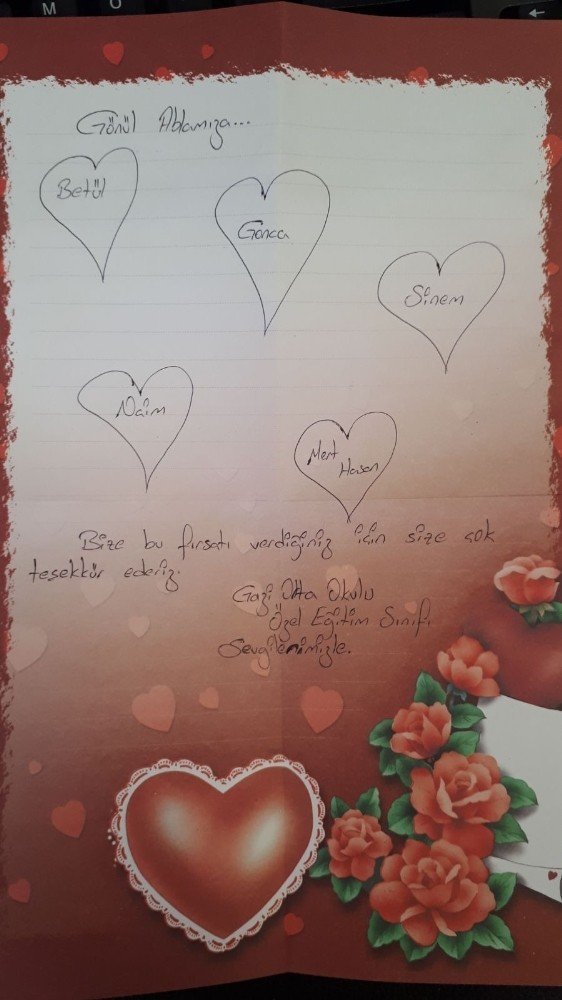 M Ö
Gönül Ablamıza...
Betül
Gonca
Sinem
Naim
Mert
Hasan
Bize bu fırsatı verdiğiniz için size çok
teşekkür ederiz.
Gazi Orta Okulu
Özel Eğitim Sınıfı
Sevgilerimizle.